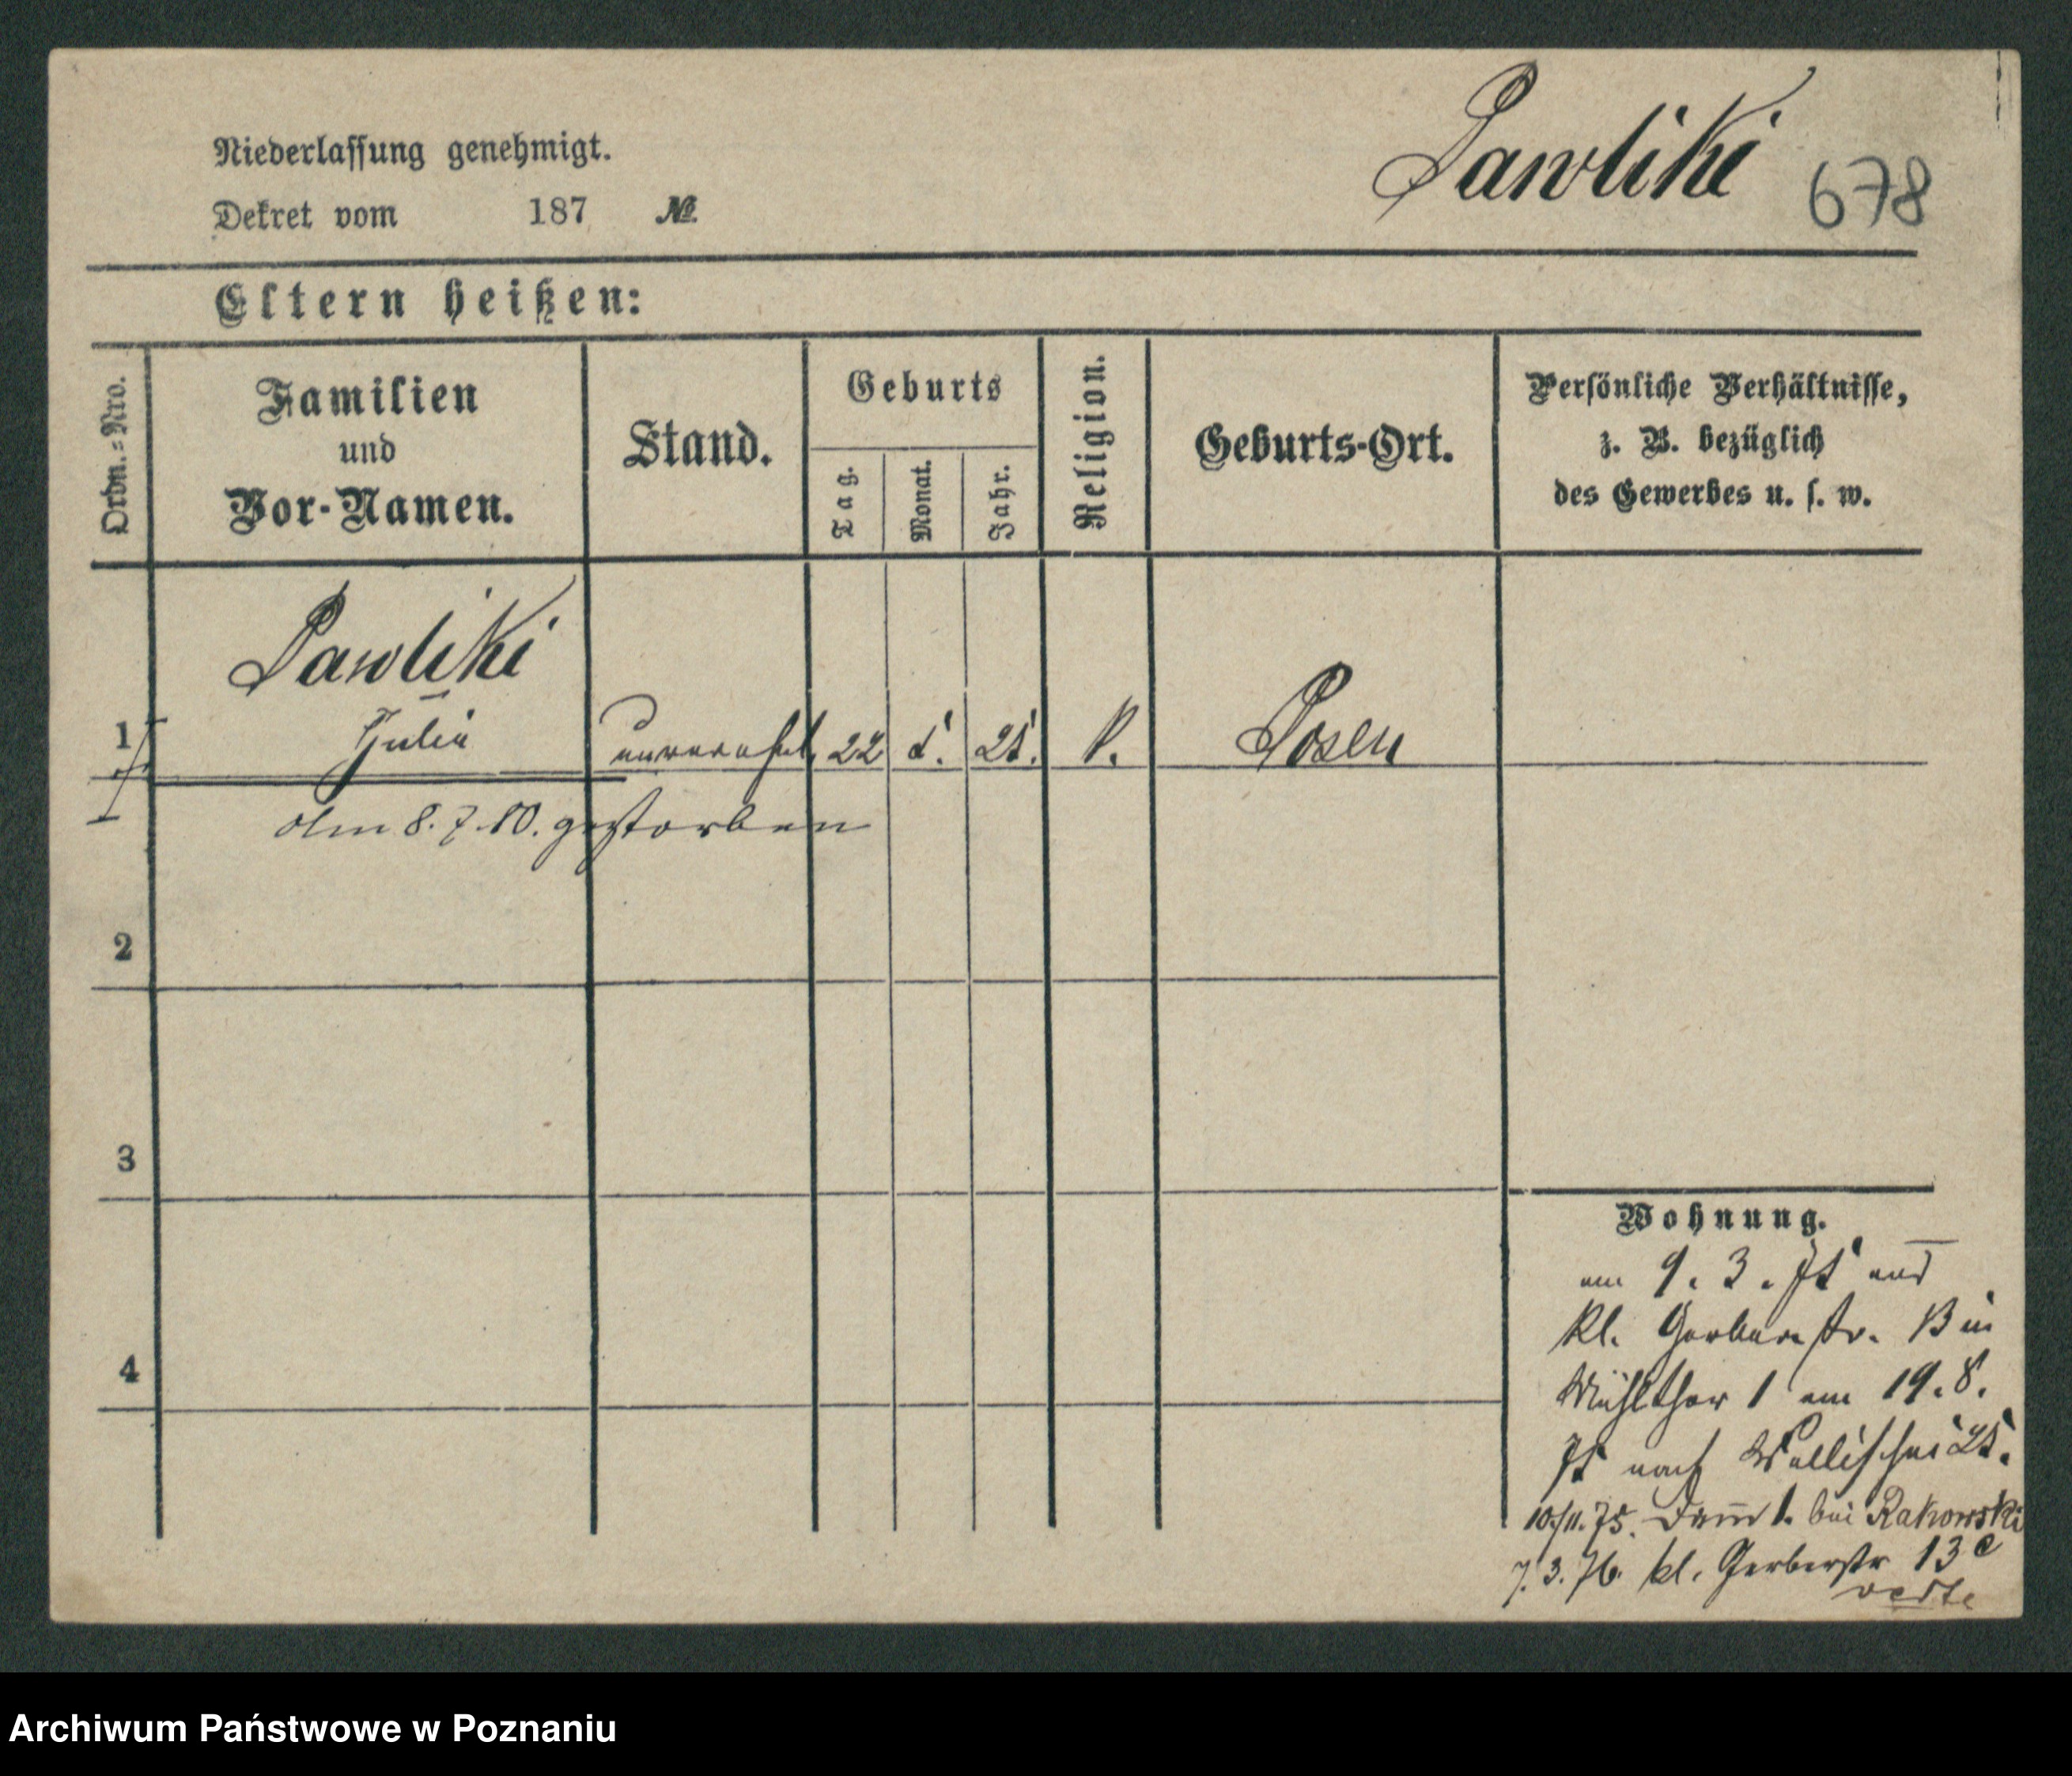 Niederlassung genehmigt.
Pawlicki 678
Dekret vom 187 №
Eltern heißen:
Ordn.=Nro.
Familien
und
Vor-Namen.
Stand.
Geburts
Tag.
Monat.
Jahr.
Religion.
Geburts-Ort.
Persönliche Verhältnisse,
z. B. bezüglich
des Gewerbes u. s. w.
Pawlicki
1 Julia unverehel. 22 5. 25. k. Posen
Am 8. 7. 80. gestorben
2
3
4
Wohnung.
am 9. 3. 75 aus
kl. Gerberstr. 13 in
Mühlthor 1 am 19. 8.
75 nach Wallischei 25.
10/11. 75. Damm 1. bei Rakowski
7. 3. 76. kl. Gerberstr 13c
verte
Archiwum Państwowe w Poznaniu